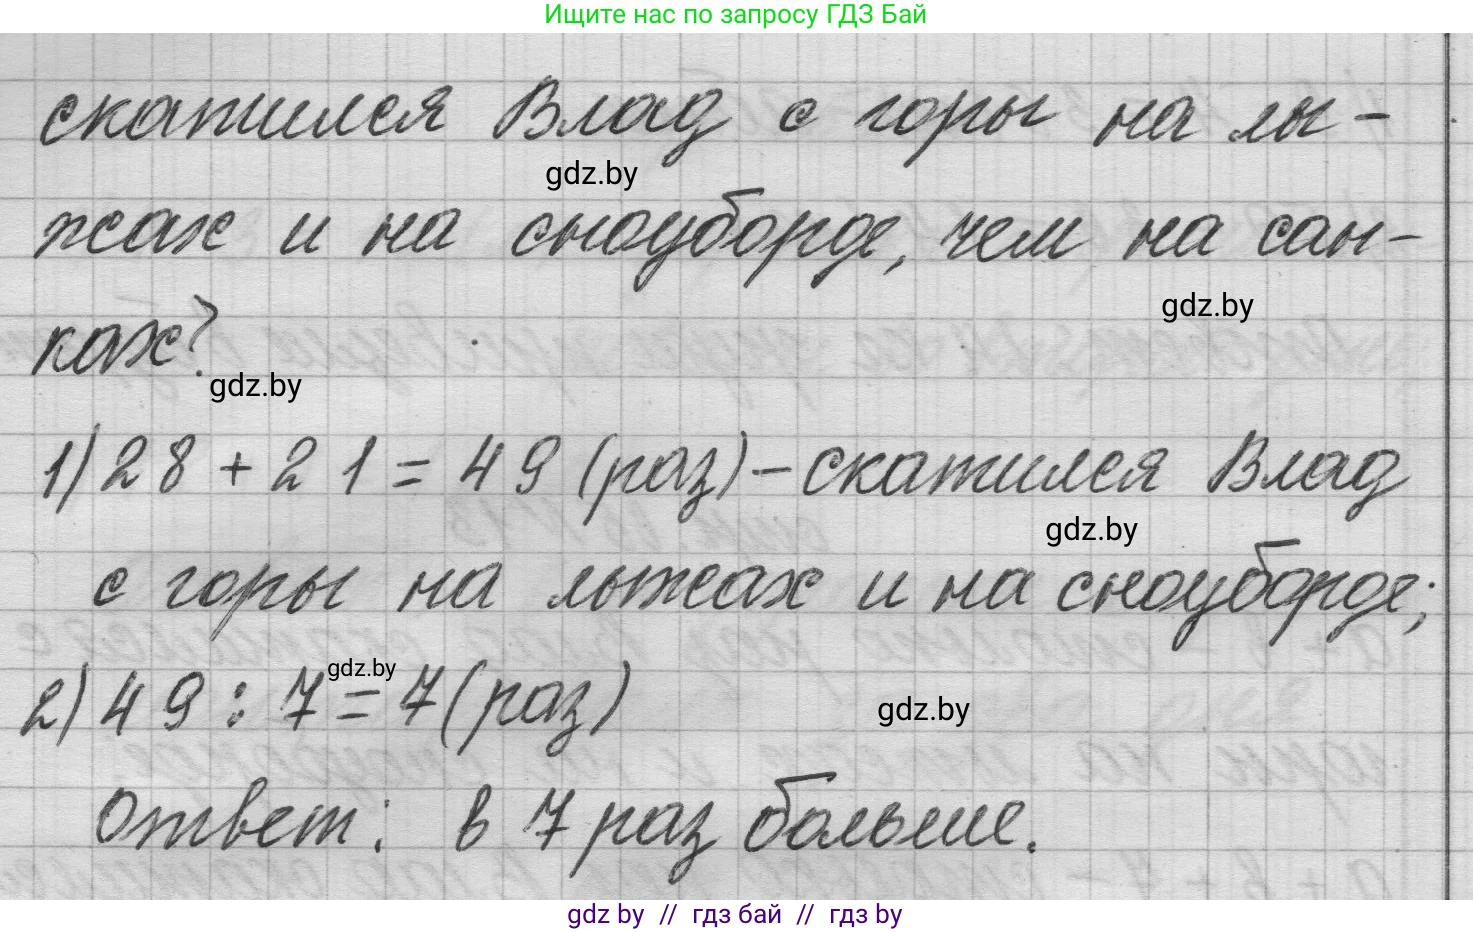 Ищите нас по запросу ГДЗ Бай
скатился Влад с горы на лы-
gdz.by
жах и на сноуборде, чем на сан-
gdz.by
ках?
gdz.by
1) 28 + 21 = 49 (раз) – скатился Влад
gdz.by
с горы на лыжах и на сноуборде;
gdz.by
2) 49 : 7 = 7 (раз)
gdz.by
Ответ: в 7 раз больше.
gdz by // гдз бай // гдз by